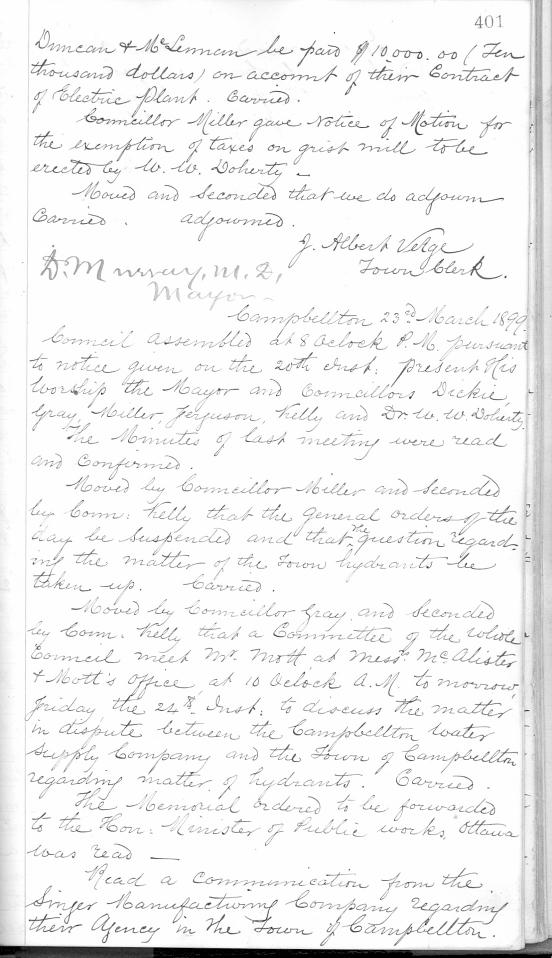 401
Duncan & McLennan be paid $10000.00 (Ten
thousand dollars) on account of their Contract
of Electric Plant. Carried.
Councillor Miller gave Notice of Motion for
the exemption of taxes on grist mill to be
erected by W. W. Doherty –
Moved and Seconded that we do adjourn
Carried. adjourned.
J. Albert Verge
Town Clerk.
D. Murray, M.D.,
Mayor –
Campbellton 23rd March 1899.
Council assembled at 8 Oclock P.M. pursuant
to notice given on the 20th inst: present His
Worship the Mayor and Councillors Dickie,
Gray, Miller, Ferguson, Kelly and Dr. W. W. Doherty.
The Minutes of last meeting were read
and Confirmed.
Moved by Councillor Miller and Seconded
by Coun: Kelly that the General orders of the
day be suspended and that the question regard-
ing the matter of the Town hydrants be
taken up. Carried.
Moved by Councillor Gray and Seconded
by Coun. Kelly that a Committee of the whole
Council meet Mr. Mott at Messrs McAlister
& Mott's office, at 10 Oclock A.M. to morrow,
Friday the 24th Inst: to discuss the matter
in dispute between the Campbellton Water
Supply Company and the Town of Campbellton
regarding matter of hydrants. Carried.
The Memorial ordered to be forwarded
to the Hon: Minister of Public works, Ottawa
was read —
Read a communication from the
Singer Manufacturing Company regarding
their Agency in the Town of Campbellton.